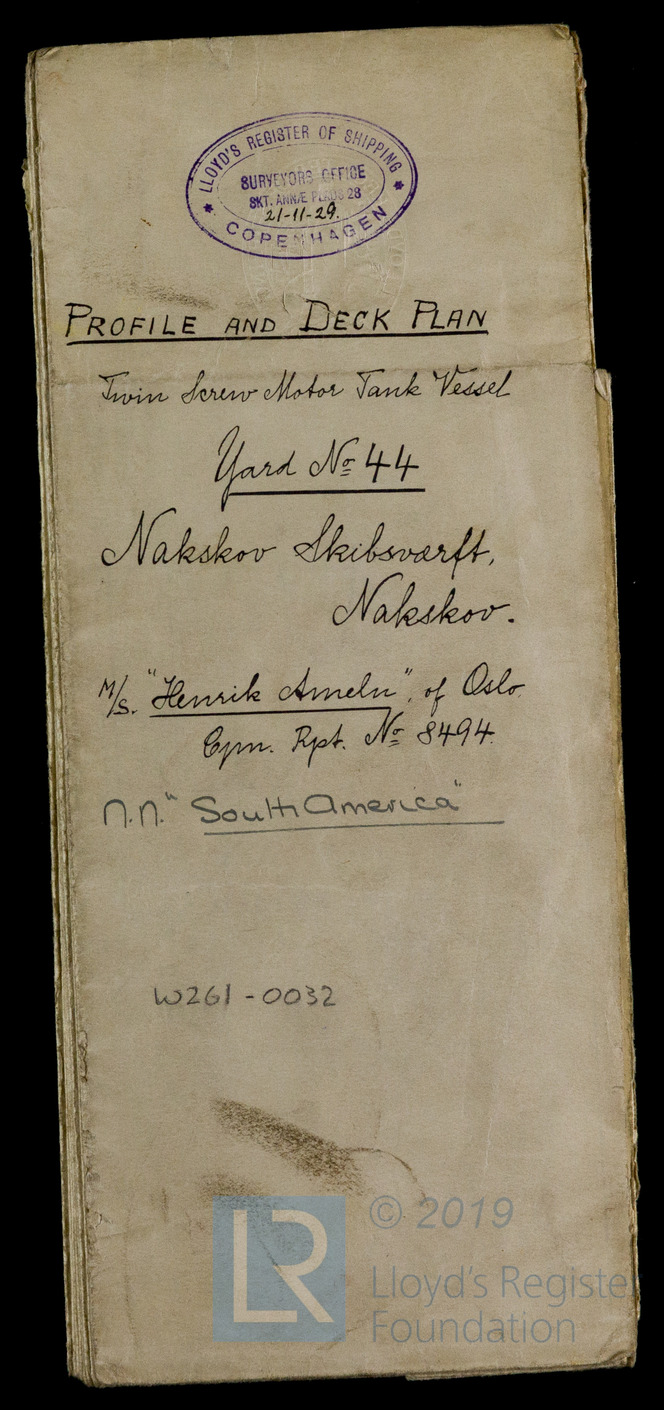 LLOYD'S REGISTER OF SHIPPING
SURVEYORS OFFICE
SKT. ANNÆ PLADS 28
21-11-29.
COPENHAGEN
PROFILE AND DECK PLAN
Twin Screw Motor Tank Vessel
Yard No 44
Nakskov Skibsværft,
Nakskov.
M/S. "Henrik Ameln", of Oslo
Cpn. Rpt. No 8494.
n.n." South America"
W261-0032
LR
© 2019
Lloyd's Register
Foundation